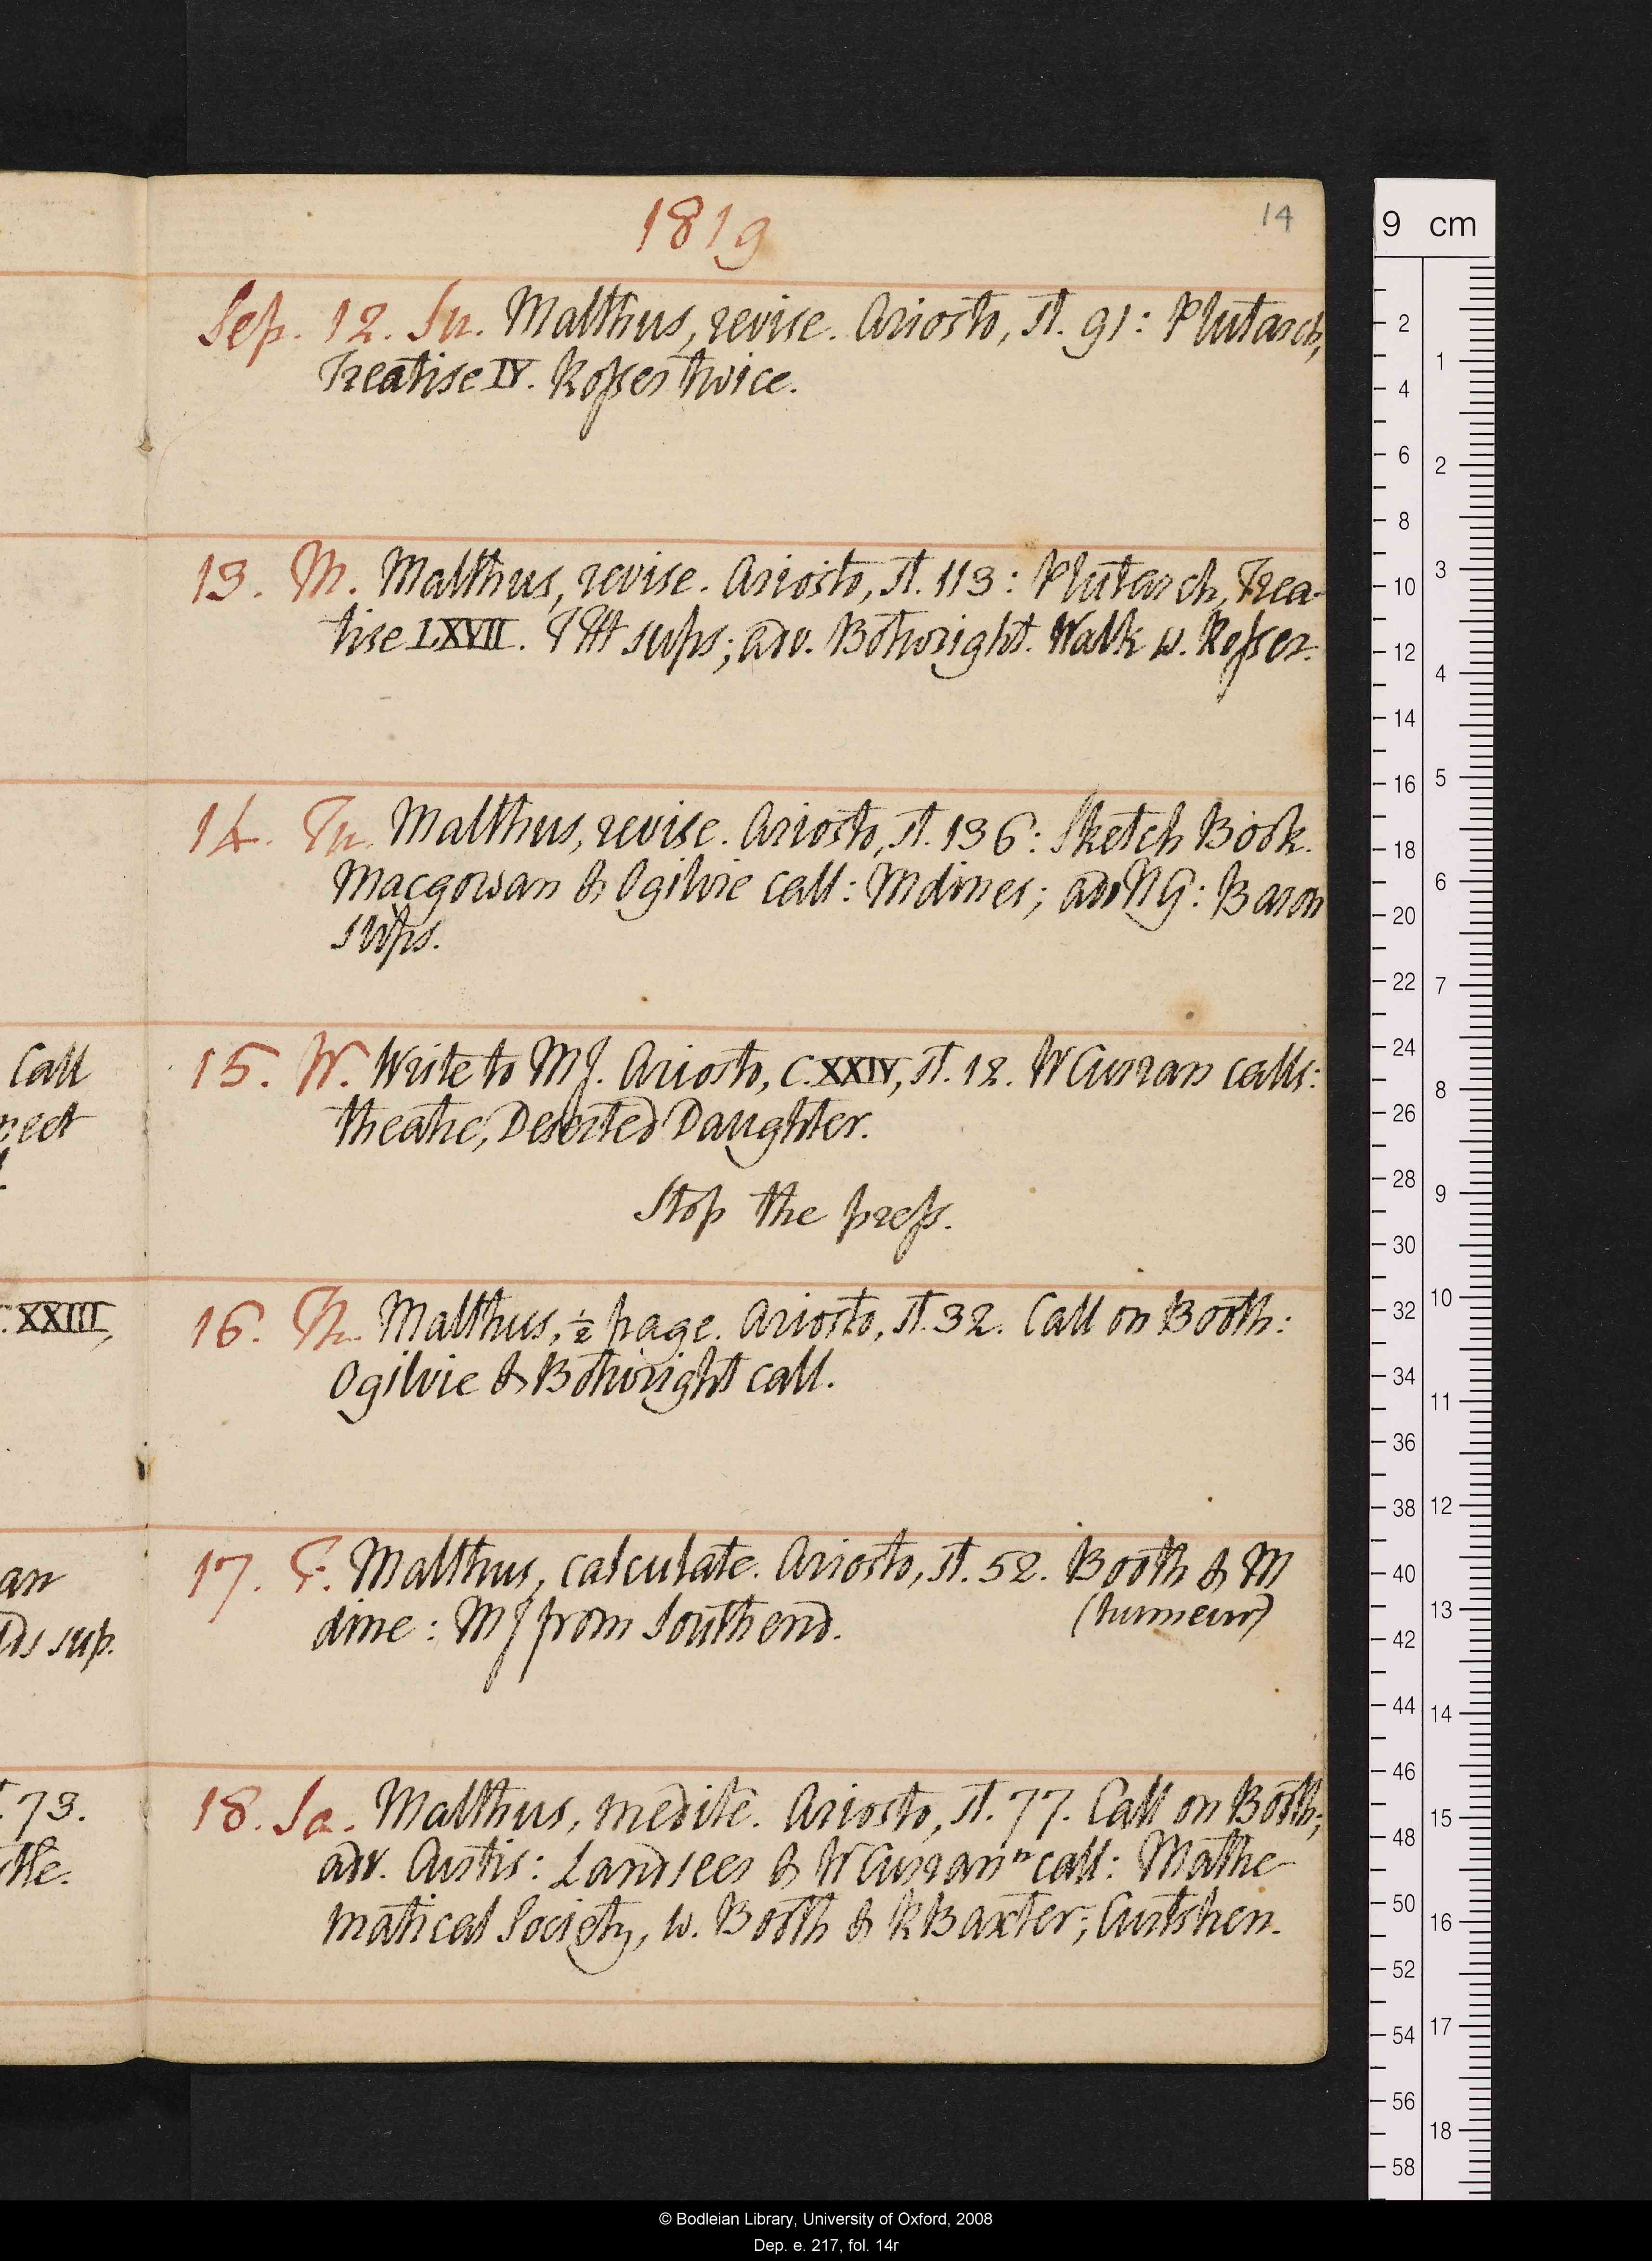 1819
14
Sep. 12. Su. Malthus, revise. Ariosto, st. 91: Plutarch,
Treatise IV. Rosser twice.
13. M. Malthus, revise. Ariosto, st. 113: Plutarch, Trea-
tise LXVII. sups; adv. Botwright. Walk w. Rosser.
14. Tu. Malthus, revise. Ariosto, st. 136: Sketch Book.
Macgowan & Ogilvie call: M dines; adv HG: Baron
sups.
Call
15. W. Write to MJ. Ariosto, C. XXIV, st. 12. W Curran calls:
theatre, Deserted Daughter.
Stop the press.
XXIII,
16. Th. Malthus, ½ page. Ariosto, st. 32. Call on Booth:
Ogilvie & Botwright call.
17. F. Malthus, calculate. Ariosto, st. 52. Booth & M
dine: MJ from Southend.
sup.
73.
18. Sa. Malthus, medité. Ariosto, st. 77. Call on Booth;
adv. Curtis: Landseer & W Curran n call: Mathe-
matical Society, w. Booth & R Baxter;
9 cm
2
4
6
8
10
12
14
16
18
20
22
24
26
28
30
32
34
36
38
40
42
44
46
48
50
52
54
56
58
1
2
3
4
5
6
7
8
9
10
11
12
13
14
15
16
17
18
© Bodleian Library, University of Oxford, 2008
Dep. e. 217, fol. 14r